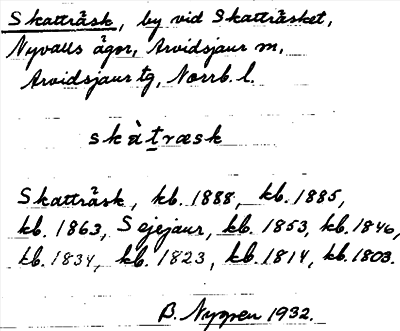 Skatträsk, by vid Skatträsket,
Nyvalls ägor, Arvidsjaur sn,
Arvidsjaur tg, Norrb. l.
skàtræsk
Skatträsk, kb. 1888, kb. 1885,
kb. 1863, Sejejaur, kb. 1853, kb. 1846,
kb. 1834, kb. 1823, kb. 1814, kb. 1803.
B. Nygren 1932.